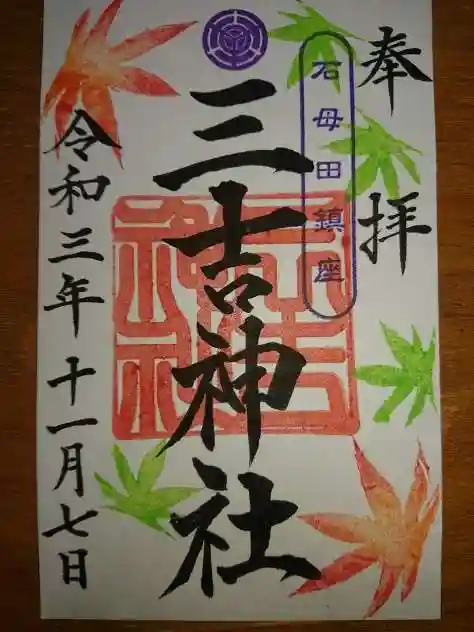 奉拝
石母田鎮座
三吉神社
三吉神社
令和三年十一月七日